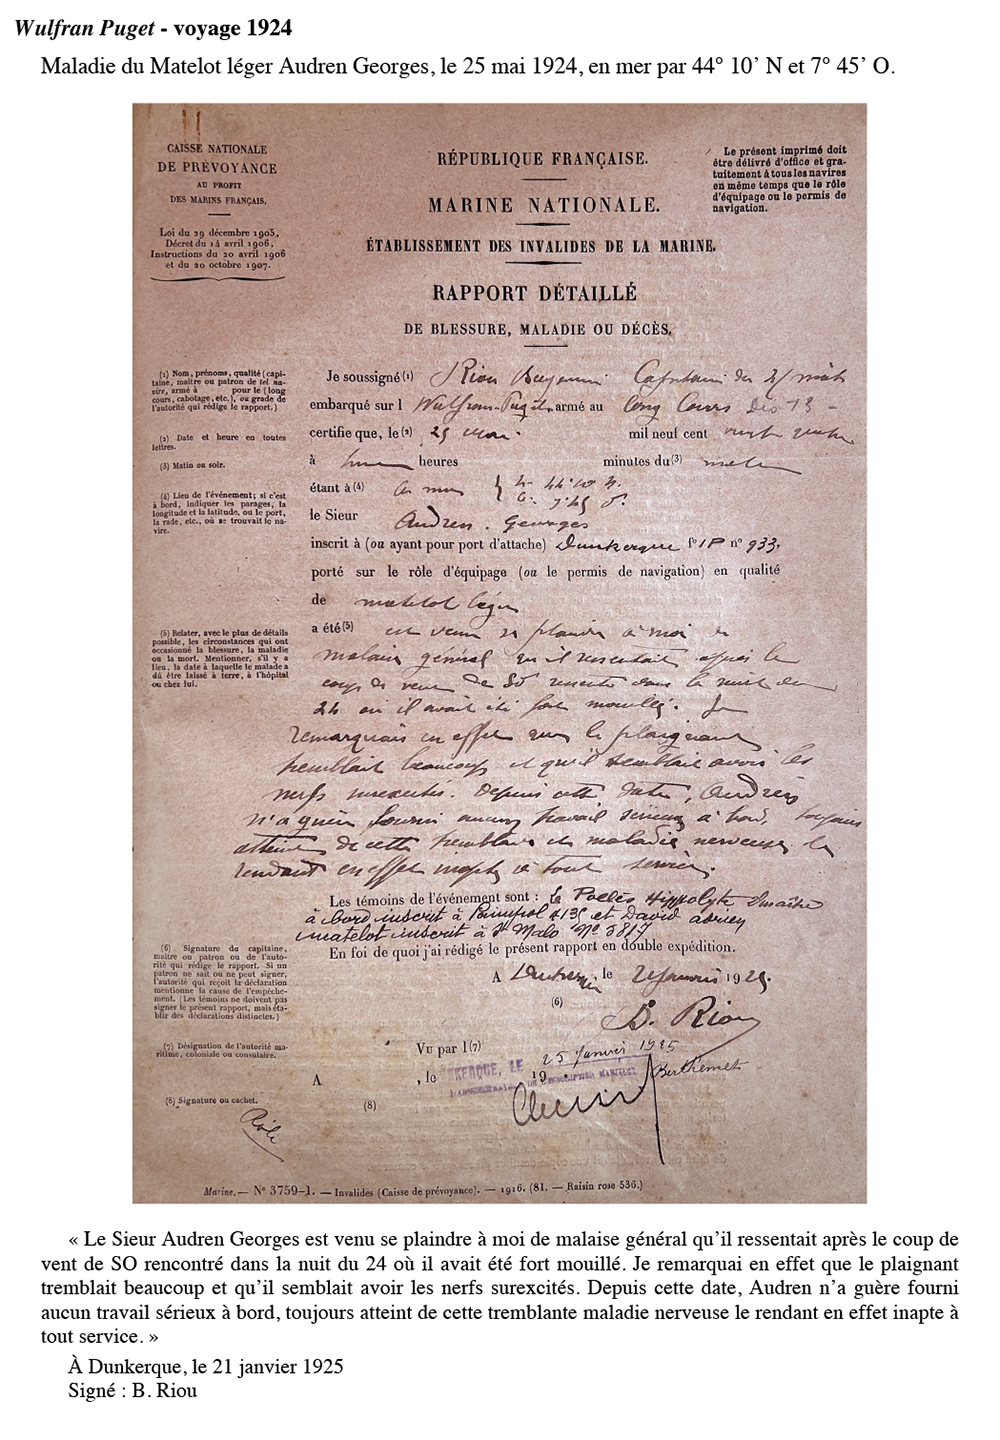 Wulfran Puget - voyage 1924
Maladie du Matelot léger Audren Georges, le 25 mai 1924, en mer par 44° 10’ N et 7° 45’ O.
CAISSE NATIONALE
DE PRÉVOYANCE
AU PROFIT
DES MARINS FRANÇAIS.
Loi du 29 décembre 1905,
Décret du 14 avril 1906,
Instructions du 20 avril 1906
et du 20 octobre 1907.
RÉPUBLIQUE FRANÇAISE.
MARINE NATIONALE.
ÉTABLISSEMENT DES INVALIDES DE LA MARINE.
RAPPORT DÉTAILLÉ
DE BLESSURE, MALADIE OU DÉCÈS.
Le présent imprimé doit
être délivré d'office et gra-
tuitement à tous les navires
en même temps que le rôle
d'équipage ou le permis de
navigation.
(1) Nom, prénoms, qualité (capi-
taine, maître ou patron de tel na-
vire, armé à pour le (long
cours, cabotage, etc.), ou grade de
l'autorité qui rédige le rapport.)
(2) Date et heure en toutes
lettres.
(3) Matin ou soir.
(4) Lieu de l'événement; si c'est
à bord, indiquer les parages, la
longitude et la latitude, ou le port,
la rade, etc., où se trouvait le na-
vire.
(5) Relater, avec le plus de détails
possible, les circonstances qui ont
occasionné la blessure, la maladie
ou la mort. Mentionner, s'il y a
lieu, la date à laquelle le malade a
dû être laissé à terre, à l'hôpital
ou chez lui.
(6) Signature du capitaine,
maître ou patron ou de l'auto-
rité qui rédige le rapport. Si un
patron ne sait ou ne peut signer,
l'autorité qui reçoit la déclaration
mentionne la cause de l'empêche-
ment. (Les témoins ne doivent pas
signer le présent rapport, mais éta-
blir des déclarations distinctes.)
(7) Désignation de l'autorité ma-
ritime, coloniale ou consulaire.
(8) Signature ou cachet.
Je soussigné (1) Riou Capitaine du 3/mâts
embarqué sur l Wulfran-Puget armé au long Cours
certifie que, le (2) 25 mai mil neuf cent vingt quatre
à heures minutes du (3) matin
étant à (4) en mer 44° 10 N. 7° 45 O.
le Sieur Audren Georges
inscrit à (ou ayant pour port d'attache) Dunkerque f° IP n° 933.
porté sur le rôle d'équipage (ou le permis de navigation) en qualité
de matelot léger
a été (5) est venu se plaindre à moi de
malaise général qu'il ressentait après le
coup de vent de SO rencontré dans la nuit du
24 où il avait été fort mouillé. Je
remarquais en effet que le plaignant
tremblait beaucoup et qu'il semblait avoir les
nerfs surexcités. Depuis cette date, Audren
n'a guère fourni aucun travail sérieux à bord, toujours
atteint de cette tremblante et maladie nerveuse le
rendant en effet inapte à tout service.
Les témoins de l'événement sont : Hippolyte maître
à bord inscrit à Paimpol 4135 et David adrien
matelot inscrit à St Malo N° 3817
En foi de quoi j'ai rédigé le présent rapport en double expédition.
A Dunkerque le 21 Janvier 1925.
(6)
B. Riou
Vu par l (7)
25 Janvier 1925
A , le 19
Berthemet
(8)
Rôle
Marine. — N° 3759-1. — Invalides (Caisse de prévoyance). — 1916. (81. — Raisin rose 536.)
« Le Sieur Audren Georges est venu se plaindre à moi de malaise général qu’il ressentait après le coup de
vent de SO rencontré dans la nuit du 24 où il avait été fort mouillé. Je remarquai en effet que le plaignant
tremblait beaucoup et qu’il semblait avoir les nerfs surexcités. Depuis cette date, Audren n’a guère fourni
aucun travail sérieux à bord, toujours atteint de cette tremblante maladie nerveuse le rendant en effet inapte à
tout service. »
À Dunkerque, le 21 janvier 1925
Signé : B. Riou